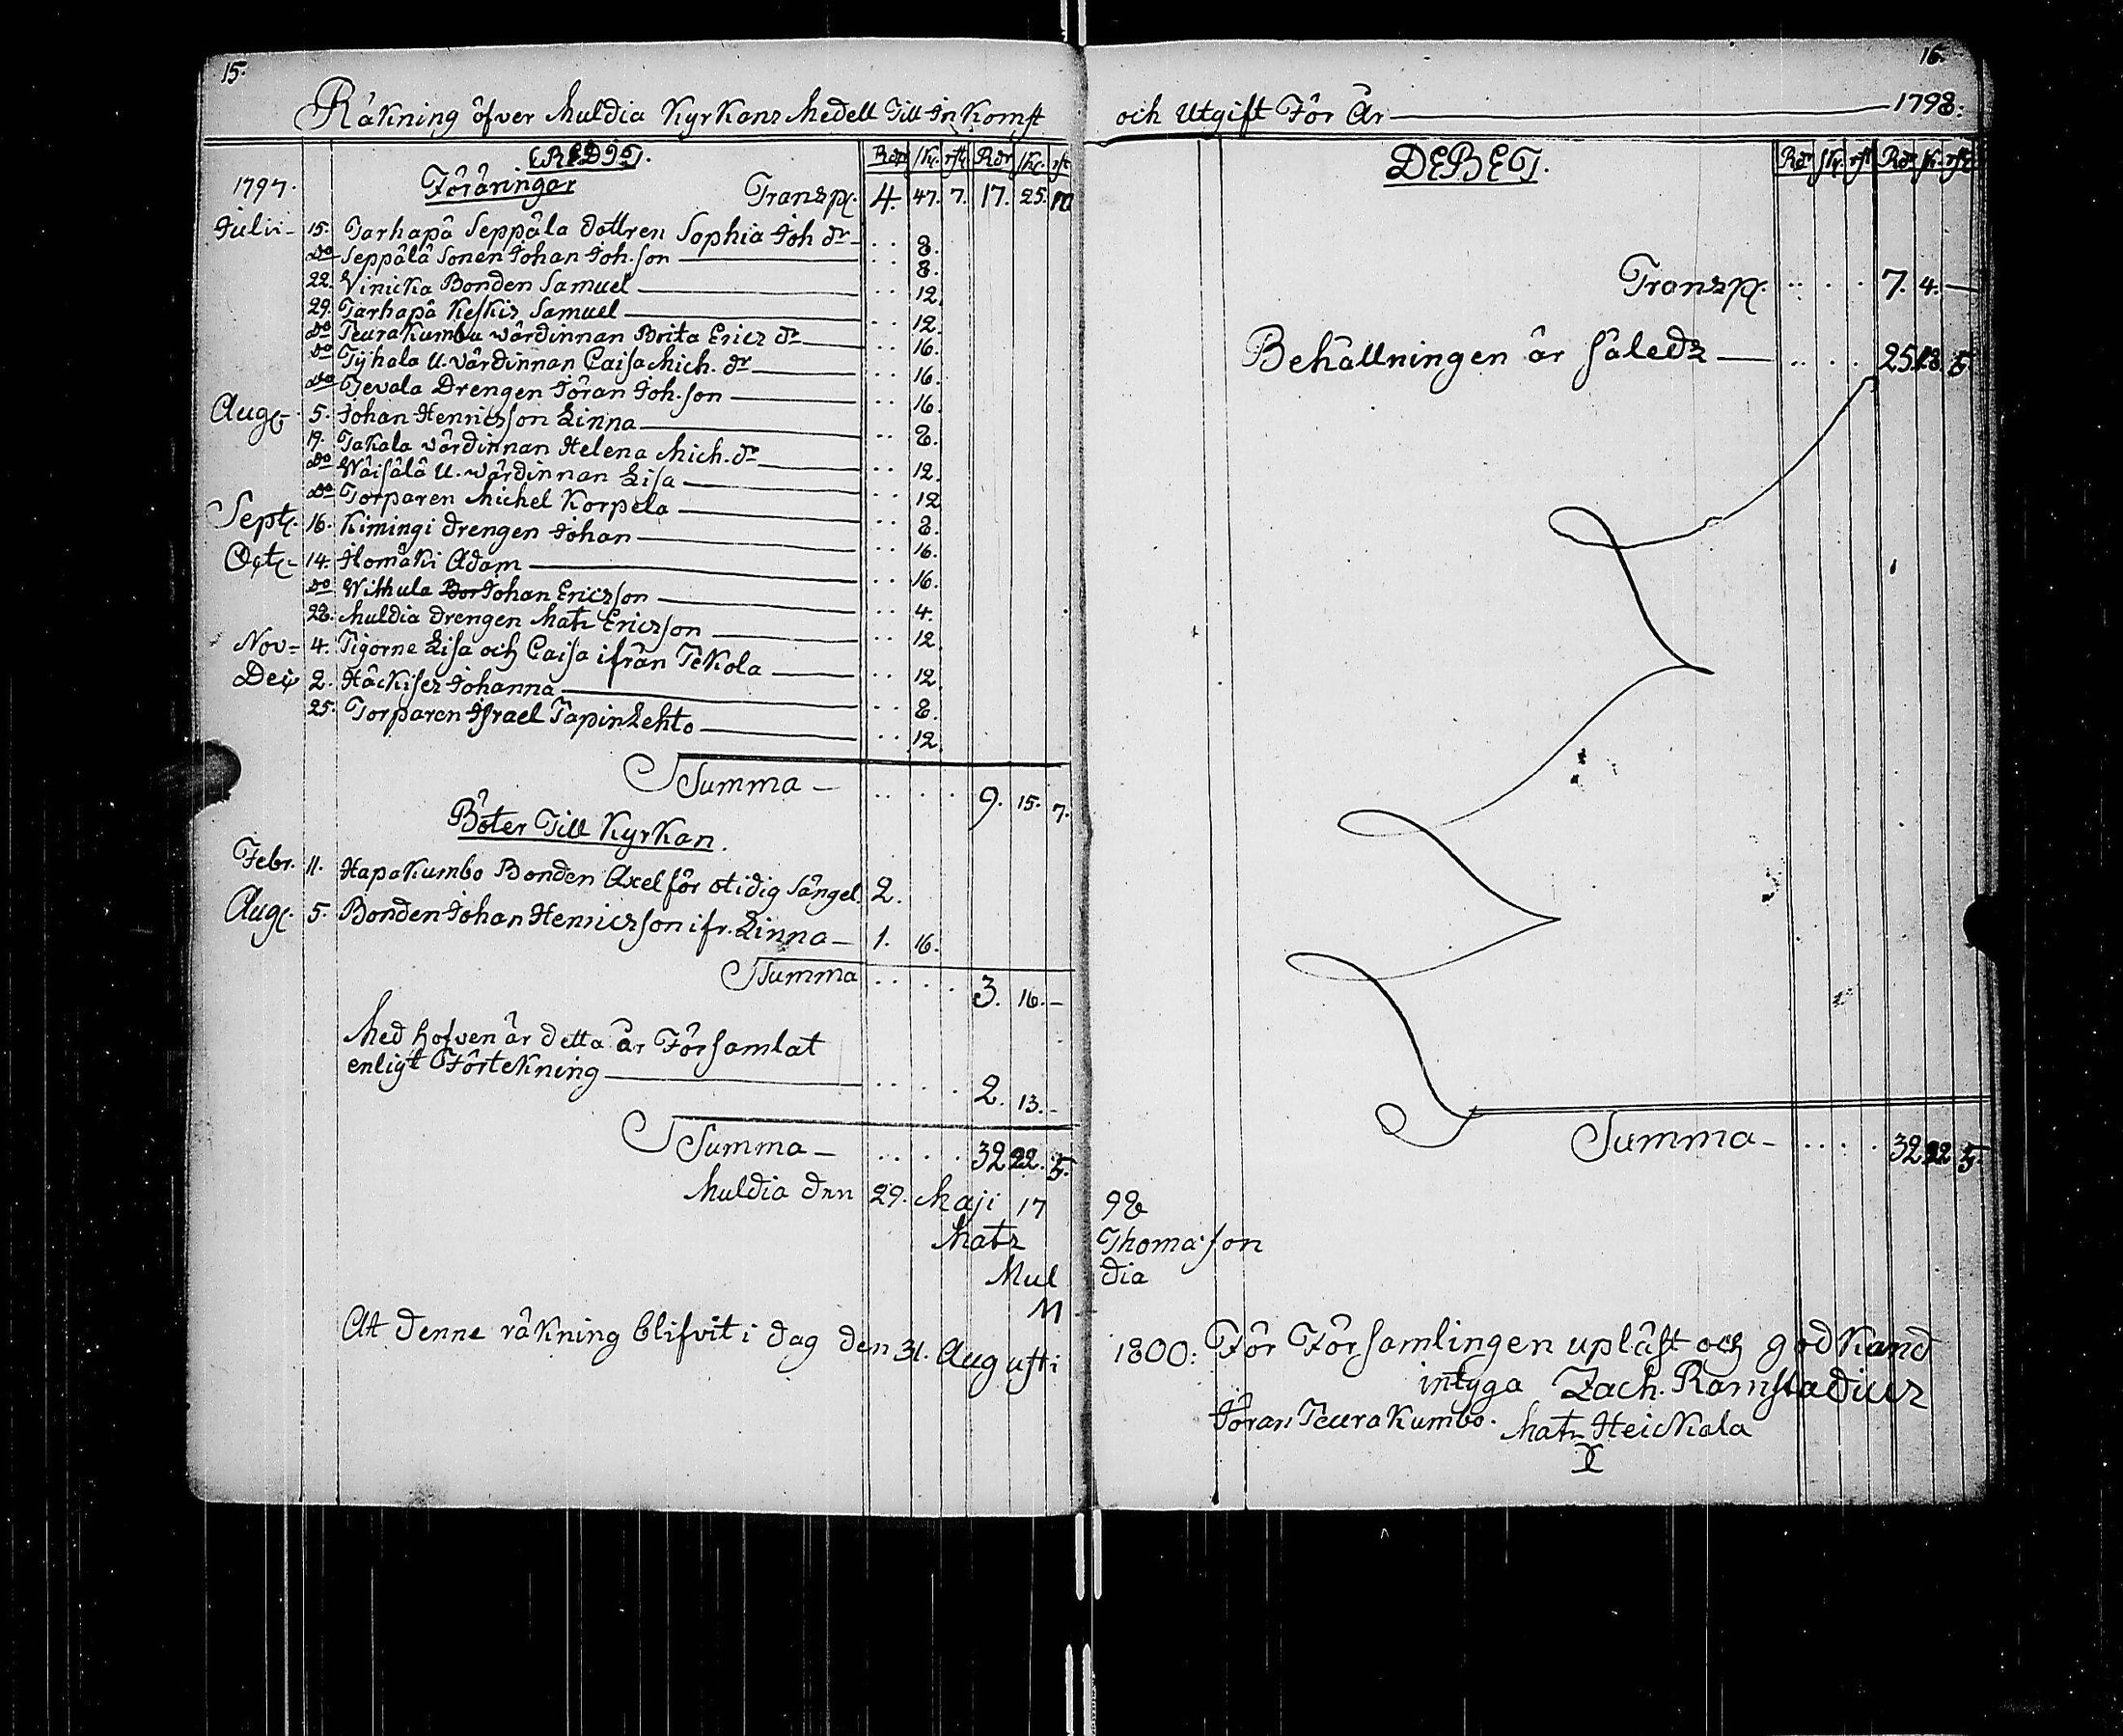 15.
Räkning öfver Muldia Kyrkans Medell Till Inkomst
CREDIT. Rdr sk. rst. Rdr sk. rst
1797. Föräringar Transp. 4. 47. 7. 17. 25. 10
Julii 15. Tarhapä Seppäla dottren Sophia Joh dr .. 8.
do Seppälä Sonen Johan Joh.son .. 8.
22. Vinicka Bonden Samuel .. 12.
29. Tarhapä Keskis Samuel .. 12.
do Teurakumbu värdinnan Brita Erics dr .. 16.
do Tyhala U. värdinnan Caisa Mich. dr .. 16.
do Jevala Drengen Jöran Joh.son .. 16.
Aug. 5. Johan Henricsson Linna .. 8.
19. Jakala värdinnan Helena Mich. dr .. 12.
do Wäisälä U. wärdinnan Lisa .. 12
do Torparen Michel Korpela .. 8.
Sept. 16. Kimingi drengen Johan .. 16.
Oct. 14. Ilomäki Adam .. 16.
do Withula Bor Johan Ericsson .. 4.
28. Muldia drengen Mats Ericsson .. 12.
Nov. 4. Pigorne Lisa och Caisa ifrån Tekola .. 12.
Dec. 2. Häckises Johanna .. 8.
25. Torparen Israel Tapinlehto .. 12.
Summa .. . . 9. 15. 7.
Böter Till Kyrkan.
Febr. 11. Hapakumbo Bonden Axel för otidig sängel. 2.
Aug. 5. Bonden Johan Henricsson ifr. Linna 1. 16.
Summa .. . . 3. 16. –
Med hofven är detta år Församlat
enligt Förtekning .. . . 2. 13. –
Summa .. . . 32 22. 5.
Muldia den 29. Maji 17
Mats
Mul
M
At denne räkning blifvit i dag den 31. Augusti
16.
och Utgift För År 1798.
DEBET. Rdr sk. rst Rdr sk. rst
Transp. .. . . 7. 4. –
Behållningen är såleds .. . . 25. 18. 5.
Summa . . . . 32 22 5.
98
Thomasson
dia
1800: För Församlingen upläst och godkand
intyga Zach. Ramstadius
Jöran Teurakumbo. Mats Heickala